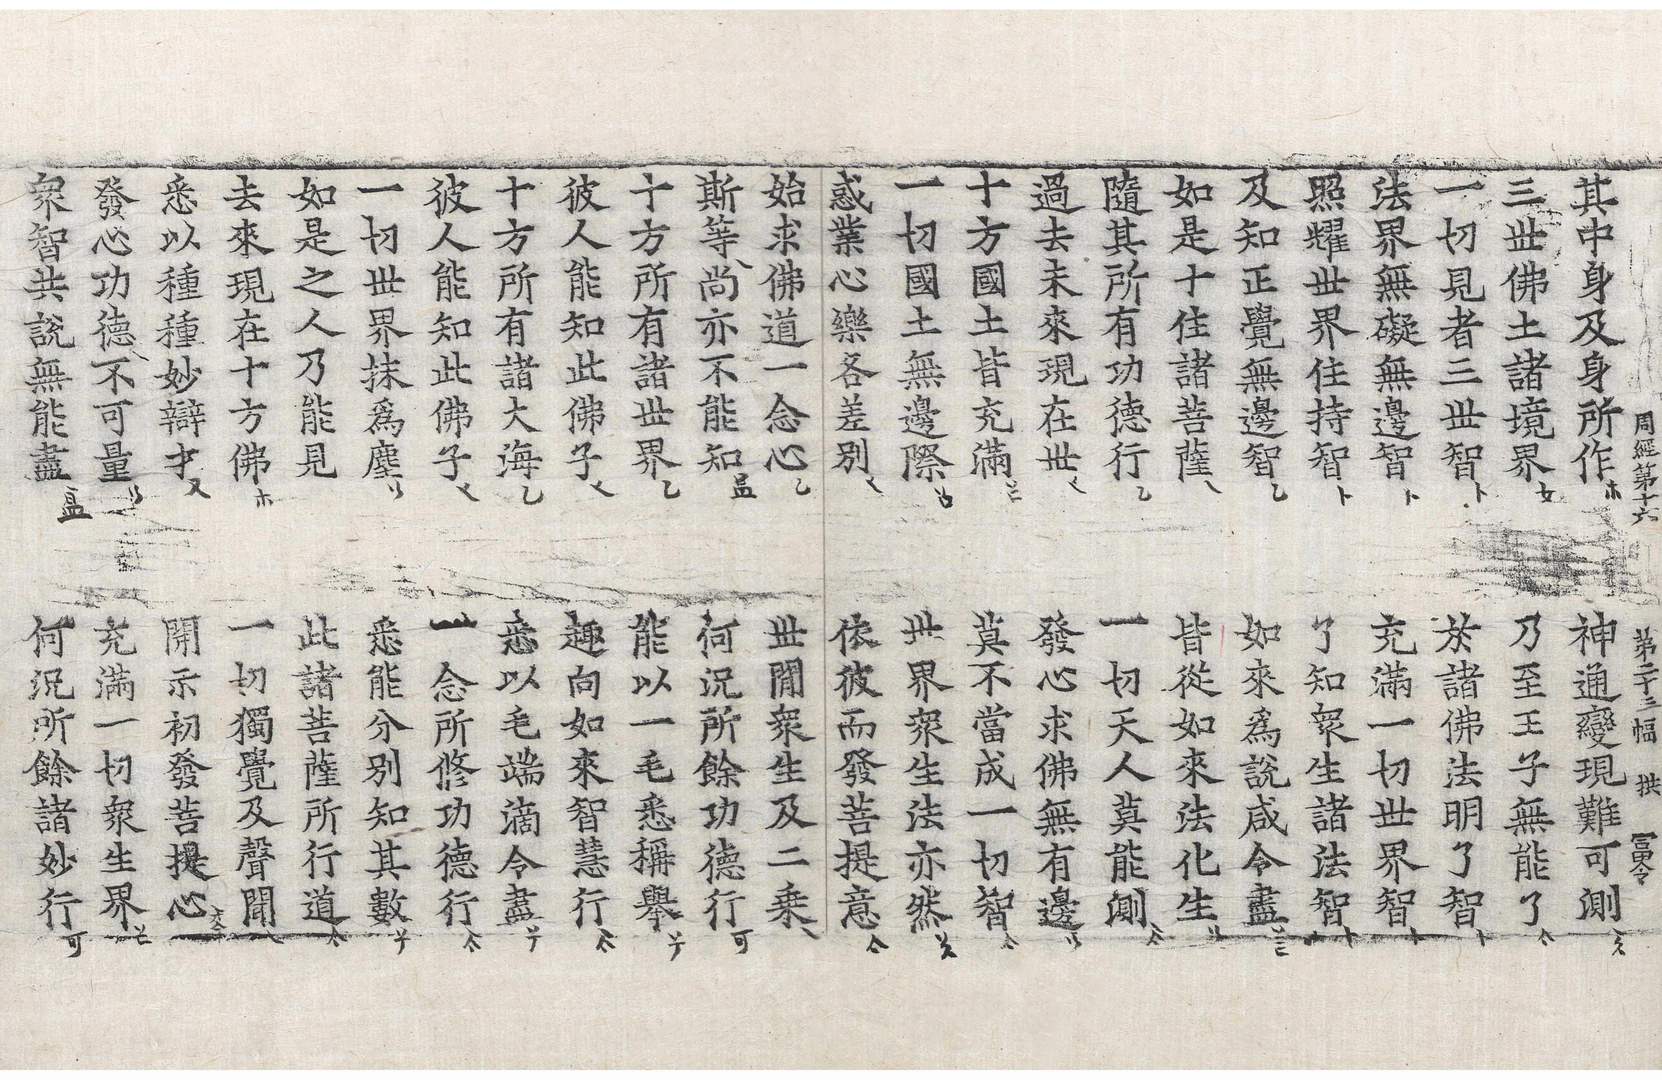 周經第十六　第二十三幅　拱　冨令
其中身及身所作　神通變現難可測
三世佛土諸境界　乃至王子無能了
一切見者三世智　於諸佛法明了智
法界無礙無邊智　充滿一切世界智
照耀世界住持智　了知衆生諸法智
及知正覺無邊智　如來爲說咸令盡
如是十住諸菩薩　皆從如來法化生
隨其所有功德行　一切天人莫能測
過去未來現在世　發心求佛無有邊
十方國土皆充滿　莫不當成一切智
一切國土無邊際　世界衆生法亦然
惑業心樂各差別　依彼而發菩提意
始求佛道一念心　世間衆生及二乘
斯等尚亦不能知　何況所餘功德行
十方所有諸世界　能以一毛悉稱舉
彼人能知此佛子　趣向如來智慧行
十方所有諸大海　悉以毛端滴令盡
彼人能知此佛子　一念所修功德行
一切世界抹爲塵　悉能分別知其數
如是之人乃能見　此諸菩薩所行道
去來現在十方佛　一切獨覺及聲聞
悉以種種妙辯才　開示初發菩提心
發心功德不可量　充滿一切衆生界
衆智共說無能盡　何況所餘諸妙行